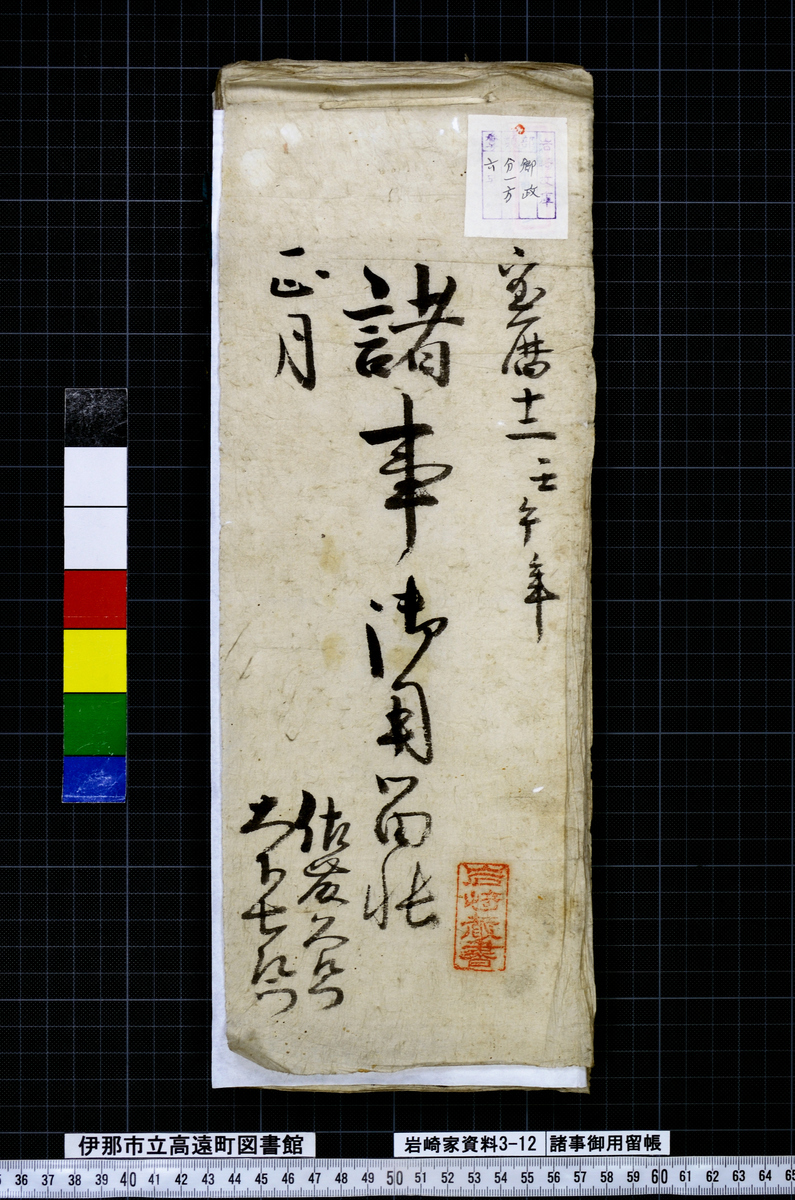 郷政
分一方
六
宝暦十二壬午年
諸事御用留帳
正月
岩崎蔵書
伊那市立高遠町図書館
岩崎家資料3-12 諸事御用留帳
36 37 38 39 40 41 42 43 44 45 46 47 48 49 50 51 52 53 54 55 56 57 58 59 60 61 62 63 64 65